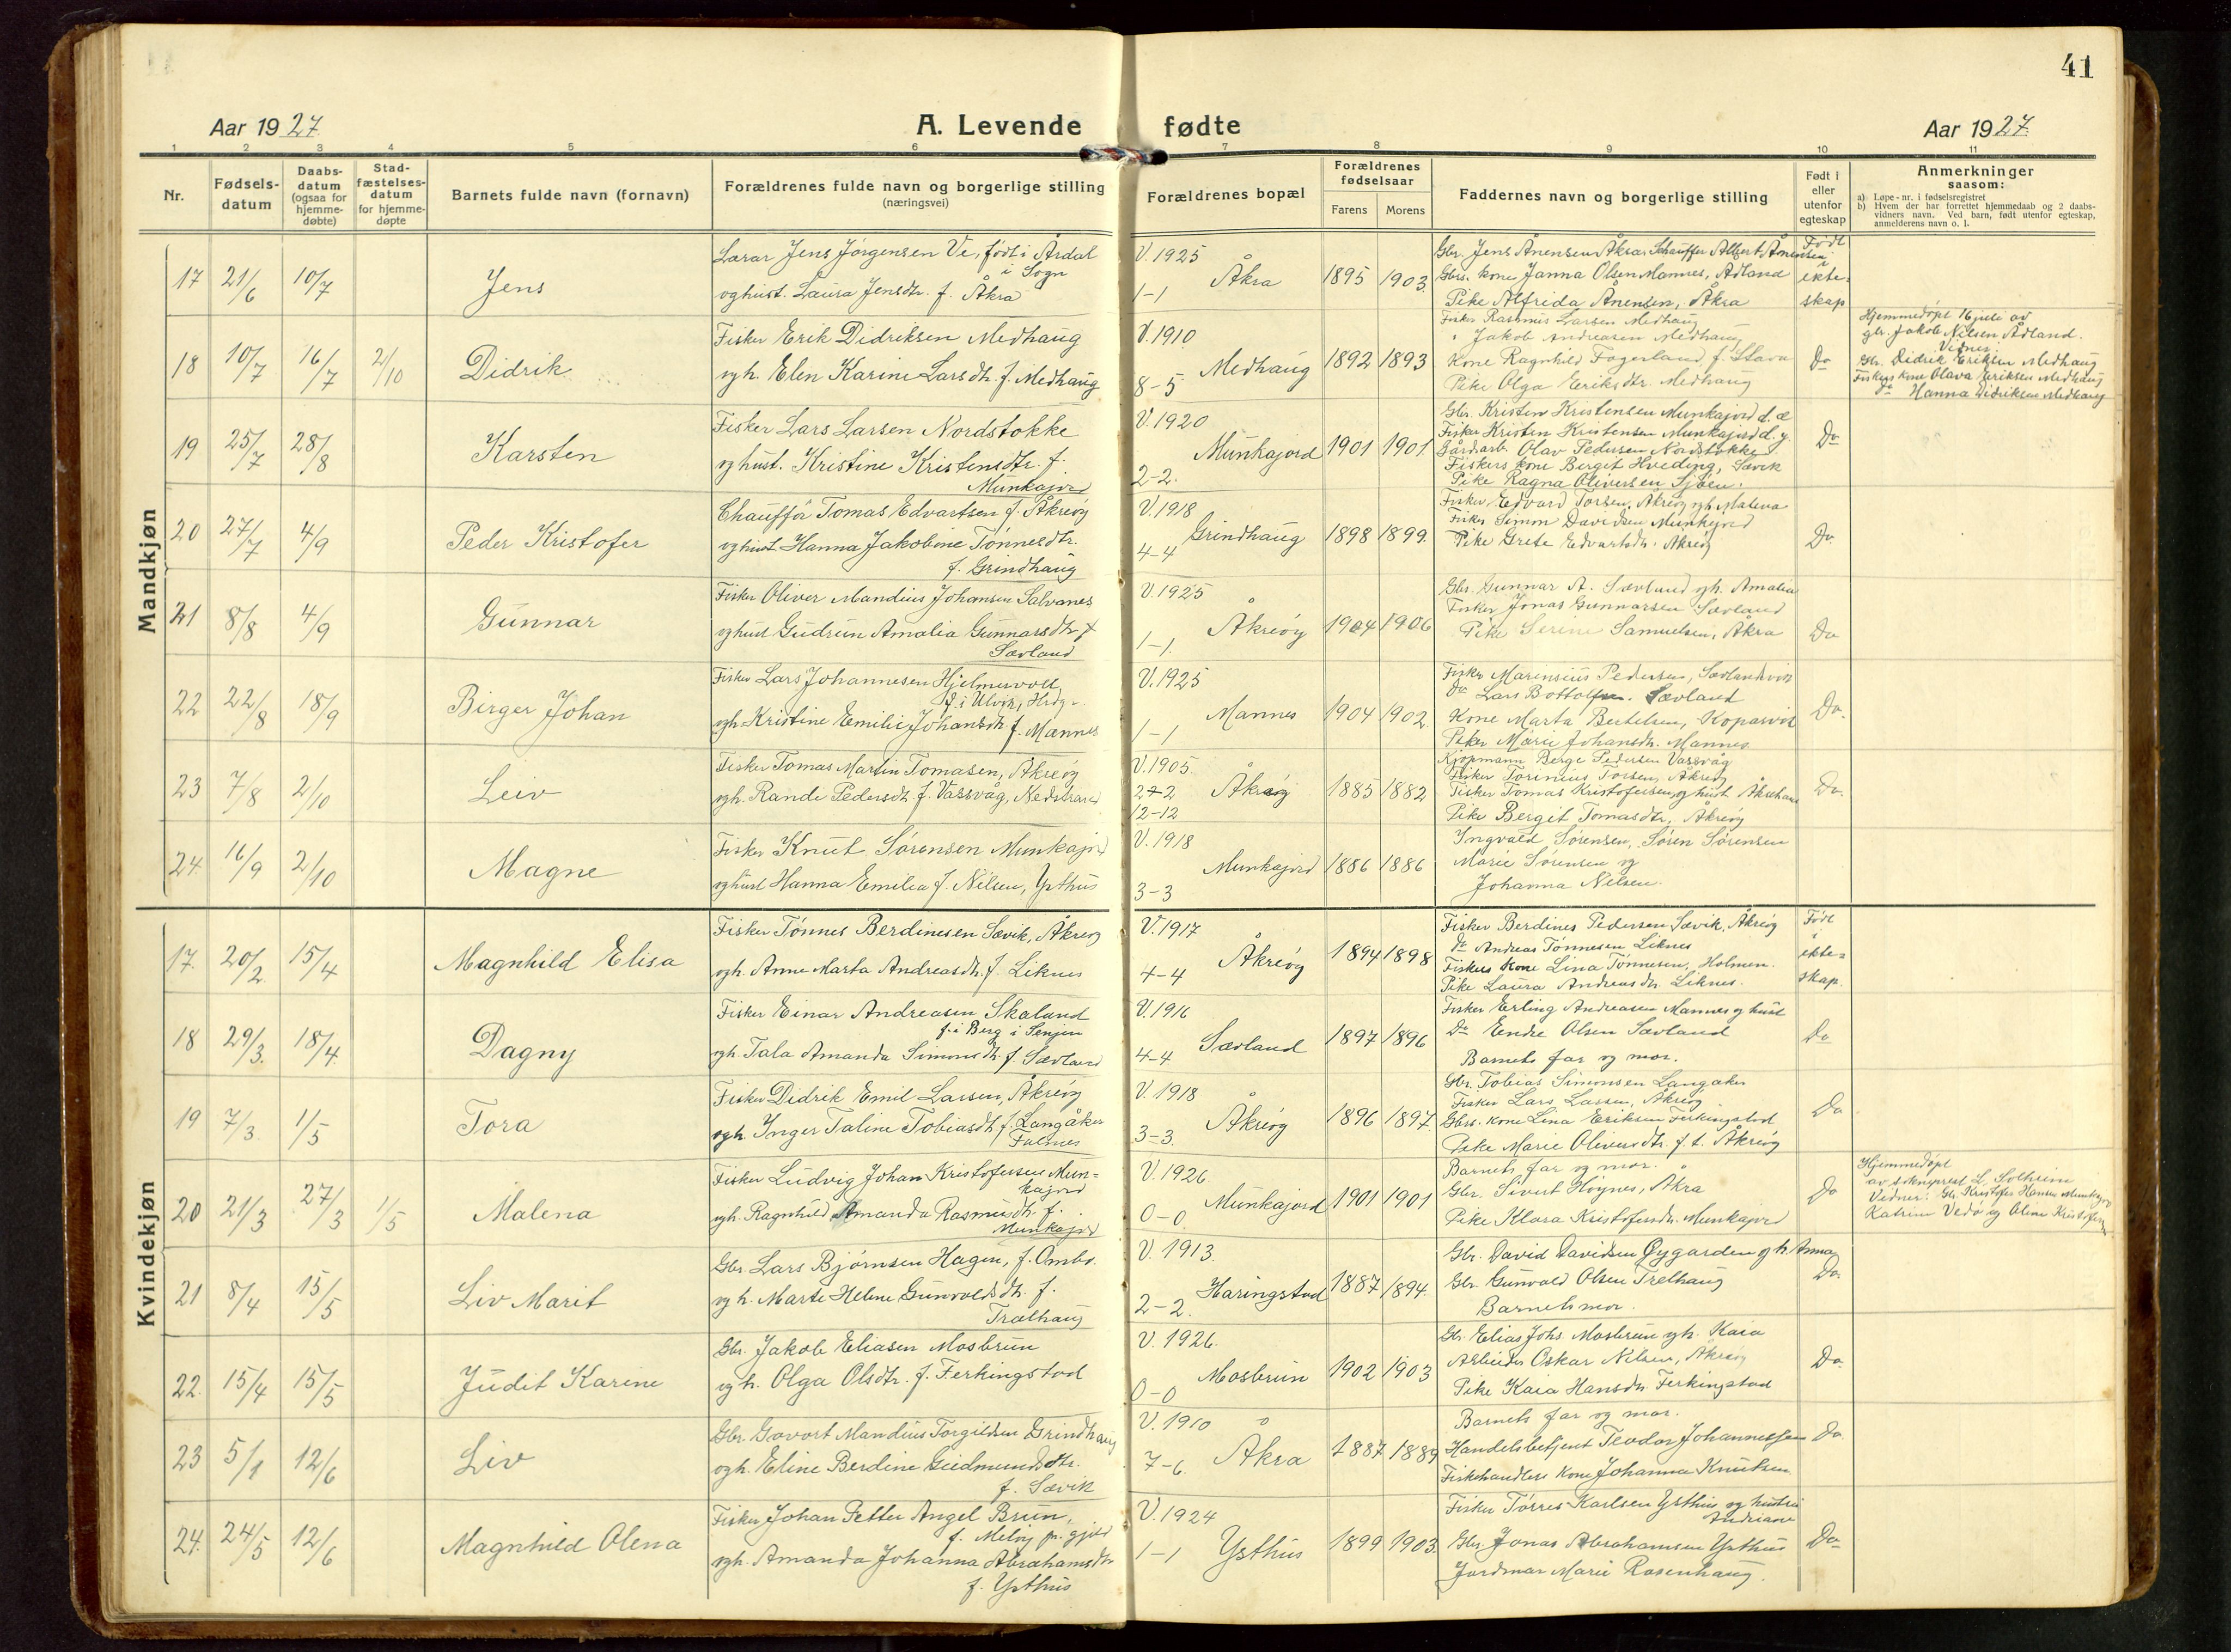 41
Aar 1927.
A. Levende fødte
Aar 1927.
1 2 3 4 5 6 7 8 9 10 11
Nr.
Fødsels-
datum
Daabs-
datum
(ogsaa for
hjemme-
døbte)
Stad-
fæstelses-
datum
for hjemme-
døpte
Barnets fulde navn (fornavn)
Forældrenes fulde navn og borgerlige stilling
(næringsvei)
Forældrenes bopæl
Forældrenes
fødselsaar
Farens
Morens
Faddernes navn og borgerlige stilling
Født i
eller
utenfor
egteskap
Anmerkninger
saasom:
a) Løpe-nr. i fødselsregistret
b) Hvem der har forrettet hjemmedaab og 2 daabs-
vidners navn. Ved barn, født utenfor egteskap,
anmelderens navn o. l.
Mandkjøn
17 21/6 10/7
Jens
Lærar Jens Jørgensen Ve, født i Årdal
i Sogn
og hust. Laura Jensdtr. f. Åkra
V. 1925
1-1
Åkra
1895 1903.
Gbr. Jens Ånensen Åkra, Schauffør Albert Ånensen
Gbrs. kone Janna Olsen Mannes, Ådland
Pike Alfrida Ånensen, Åkra
Født
i
ekte-
skap
18 10/7 16/7 2/10
Didrik
Fisker Erik Didriksen Medhaug
og h. Elen Karine Larsdtr. f. Medhaug
V. 1910
8-5
Medhaug
1892 1893
Fisker Rasmus Larsen Medhaug
" Jakob Andreasen Medhaug
Kone Ragnhild Fagerland f. Stava
Pike Olga Eriksdtr. Medhaug
Do
Hjemmedøpt 16 juli av
gbr. Jakob Nilsen Ådland.
Vidner:
Gbr. Didrik Eriksen Medhaug
Fiskers kone Olava Eriksen Medhaug
do Hanna Didriksen Medhaug
19 25/7 28/8
Karsten
Fisker Lars Larsen Nordstokke
og hust. Kristine Kristensdtr. f.
Munkajord
V. 1920
2-2.
Munkajord
1901 1901
Gbr. Kristen Kristensen Munkajord d. æ
Fisker Kristen Kristensen Munkajord d. y.
Gårdarb. Olav Pedersen Nordstokke
Fiskers kone Berget Hveding, Sævik
Pike Ragna Oliversen Sjøen.
Do
20 27/7 4/9
Peder Kristofer
Chauffør Tomas Edvartsen f. Åkreøy
og hust. Hanna Jakobine Tønnesdtr.
f. Grindhaug
V. 1918
4-4
Grindhaug
1898 1899.
Fisker Edvard Torsen, Åkreøy og h. Malena
Fisker Simon Davidsen Munkajord
Pike Grete Edvartsdtr. Åkreøy
Do.
21 8/8 4/9
Gunnar
Fisker Oliver Mandius Johansen Salvanes
og hust Gudrun Amalia Gunnarsdtr f
Sævland
V. 1925
1-1.
Åkreøy
1904 1906
Gbr. Gunnar A. Sævland og h. Amalia
Fisker Jonas Gunnarsen Sævland
Pike Serine Samuelsen, Åkra
Do
22 22/8 18/9
Birger Johan
Fisker Lars Johannesen Hjelmervoll
f. i Ulvik, Hrdg.
og h. Kristine Emilie Johansdtr f. Mannes
V. 1925
1-1
Mannes
1904 1902.
Fisker Marensius Pedersen, Sævlandsvik
Do Lars Bottolfsen. Sævland
Kone Marta Bertelsen, Kopervik
Pike Marie Johansdtr. Mannes
Do.
23 7/8 2/10
Leiv
Fisker Tomas Martin Tomasen, Åkreøy
og h. Rande Pedersdtr f. Vassvåg, Nedstrand
V. 1905.
2-2
12-12
Åkreøy
1885 1882
Kjøpmann Berge Pedersen Vassvåg
Fisker Torinius Torsen, Åkreøy
Fisker Tomas Kristofersen og hust Åkrehavn
Pike Bergit Tomasdtr, Åkreøy
Do.
24. 16/9 2/10
Magne
Fisker Knut Sørensen Munkajord
og hust Hanna Emilia f. Nilsen, Ysthus
V. 1918
3-3
Munkajord
1886 1886
Ingvald Sørensen, Søren Sørensen
Marie Sørensen og
Johanna Nilsen.
Kvindekjøn
17. 20/2 15/4
Magnhild Elisa
Fisker Tønnes Berdinesen Sævik, Åkreøy
og h. Anne Marta Andreasdtr. f. Liknes
V. 1917
4-4
Åkreøy
1894 1898
Fisker Berdines Pedersen Sævik, Åkreøy
do Andreas Tønnesen Liknes
Fiskers kone Lina Tønnesen, Holmen.
Pike Laura Andreasdtr. Liknes.
Født
i
ekte-
skap.
18 29/3. 18/4.
Dagny
Fisker Einar Andreasen Skaland
f. i Berg i Senjen
og h. Tala Amanda Simonsdtr. f. Sævland
V. 1916
4-4.
Sævland
1897 1896
Fisker Erling Andreasen Mannes og hust
Do Endre Olsen Sævland
Barnets far og mor.
Do
19 7/3. 1/5
Tora
Fisker Didrik Emil Larsen, Åkreøy
og h. Inger Taline Tobiasdtr. f. Langåker
Falnes
V. 1918
3-3.
Åkreøy
1896 1897.
Gbr. Tobias Simonsen Langåker
Fisker Lars Larsen, Åkreøy
Gbrs. kone Lina Eriksen Ferkingstad
Pike Marie Oliversdtr. f. t. Åkreøy
Do
20 21/3 27/3 1/5
Malena
Fisker Ludvig Johan Kristofersen Mun-
kajord
og h. Ragnhild Amanda Rasmusdtr. f.
Munkajord
V. 1926.
0-0
Munkajord
1901 1901
Barnets far og mor.
Gbr. Sivert Høynes, Åkra
Pike Klara Kristofersdtr. Munkajord
Do
Hjemmedøpt
av sokneprest L. Solheim
Vidner: Gbr. Kristofer Hansen Munkajord
Katrine Vedø og Oline Kristofersen
21 8/4 15/5
Liv Marit
Gbr. Lars Bjørnsen Hagen, f. Ombo.
og h. Marte Helene Gunvoldsdtr. f.
Trælhaug
V. 1913.
2-2.
Haringstad
1887 1894.
Gbr. David Davidsen Øygarden og h. Anna
Gbr. Gunvald Olsen Trælhaug
Barnets mor.
Do.
22. 15/4 15/5
Judit Karine
Gbr. Jakob Eliasen Mosbrun
og h. Olga Olsdtr. f. Ferkingstad
V. 1926.
0-0
Mosbrun
1902 1903
Gbr. Elias Johs. Mosbrun og h. Kaia
Arbeider Oskar Nilsen, Åkreøy
Pike Kaia Hansdtr. Ferkingstad
Do.
23 5/1 12/6
Liv
Gbr. Govert Mandius Torgildsen Grindhaug
og h. Eline Berdine Gudmundsdtr.
f. Sævik
V. 1910
7-6.
Åkra
1887 1889
Barnets far og mor.
Handelsbetjent Teodor Johannessen
Fiskehandlers kone Johanna Knutsen
Do.
24. 24/5 12/6
Magnhild Olena
Fisker Johan Petter Angel Brun,
f. Meløy pr. gjeld
og h. Amanda Johanna Abrahamsdtr
f. Ysthus
V. 1924
1-1
Ysthus
1899 1903.
Fisker Tørres Karlsen Ysthus og hustru
Andriane
Gbr. Jonas Abrahamsen Ysthus
Jordmor Marie Rosenhaug.
Do